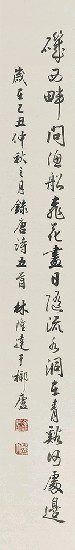 磯西畔問漁船桃花盡日隨流水洞在青谿何處邊
歲在乙丑仲秋之月錄唐詩五首 林隆達于